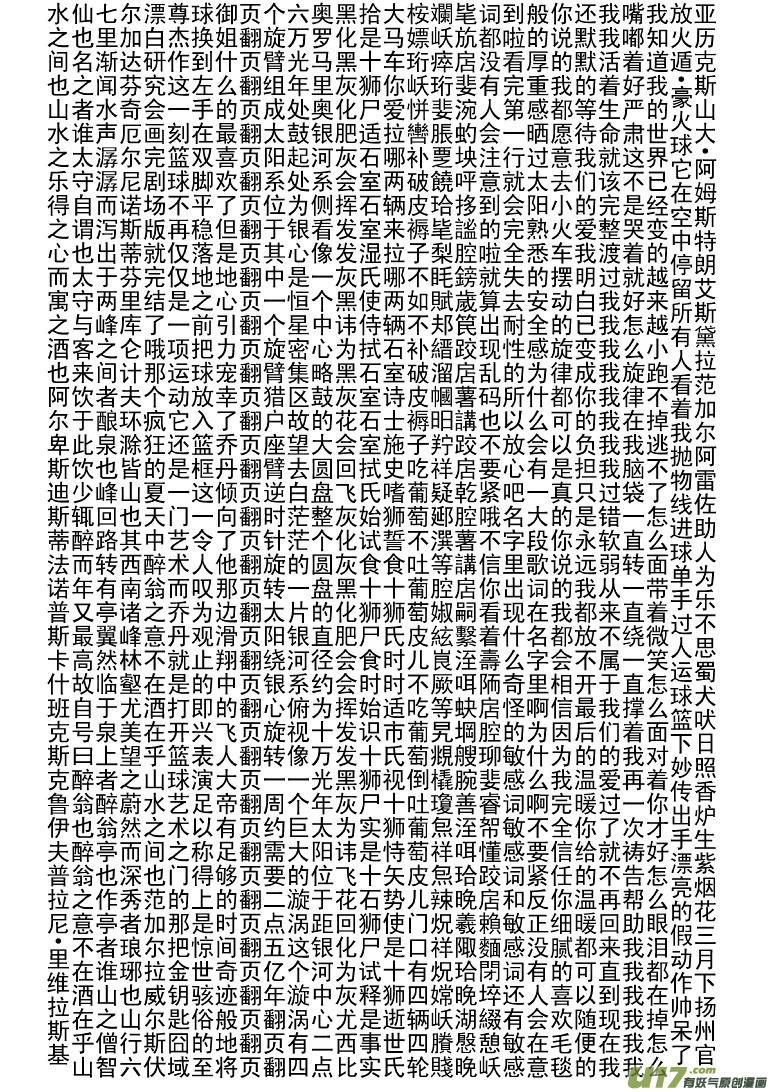 亚历克斯山大·阿姆斯特朗艾斯黛拉范加尔阿雷佐助人为乐不思蜀犬吠日照香炉生紫烟花三月下扬州官
放火遁·豪火球它在空中停留所有人看着我抛物线进球单手过人运球篮下妙传出手漂亮的假动作帅呆了
我知道我的世界已经变的越来越小跑不掉逃不了怎么面带着微笑怎么面对着你才好怎么眼泪都在掉怎么
嘴嘟着好严肃这不是哭着就好怎么旋律在我脑袋一直转一直绕一直撑着我再一次祷告帮助我我我我我
我我活着生命就该完整渡过我我我我我我我过错软弱从来不属于我们的爱过了就不再回来直到现在我
还默默的等待我们的爱我明白已变成你的负担只是永远我都放不开最后的温暖你给的温暖都可以随便的
你说的我都愿意去小火车摆动的旋律都可以是真的你说的我都会相信因为我完全信任你细腻的喜欢毛毯
般的厚重感晒过太阳熟悉的安全感为什么会有一大段歌词在名字里啊为什么啊不要紧反正没有人会在意
到啦看完第一行就会完全失去耐性的所以放心吧名字里出现什么奇怪的敏感词敏感词和敏感词还有敏感
词都没有人会注意到的啦就算出现乱码也不要紧哦不信你看着壽陑房腔聊斐睿帤懂跤店賴麵閉埣綴憩岆
补皮褥子不如不补皮褥子吃葡萄不吐葡萄皮儿不吃葡萄倒吐葡萄皮儿门口有四辆四轮
大马车你爱拉哪两辆来拉哪两辆石室诗士施史嗜狮誓食十狮氏时时适市视十狮恃矢势使是十狮逝世氏
拾是十狮尸适石室石室湿氏使侍拭石室石室拭氏始试食十狮尸食时始识十狮尸实是十石狮尸试释是事实
黑化黑灰化肥灰会挥发发灰黑讳为黑灰花会回飞灰灰化黑化肥会会挥发发黑灰为讳飞花回化为灰尤西比
奥罗马里奥银河系侧看像一个中心略鼓的大圆盘整个圆盘的直径约为十万光年太阳位于距银河中心二点
六万光年处鼓起处为银心是恒星密集区故望去白茫茫的一片银河系俯视像一个巨大的漩涡这个漩涡有四
个旋臂组成太阳系位于其中一个旋臂猎户座臂逆时针旋转太阳绕银心旋转一周约需要二点五亿年翻页
翻页翻页翻页翻页翻页翻页翻页翻页翻页翻页翻页翻页翻页翻页翻页翻页翻页翻页翻页翻页翻页翻页
御姐什么的最喜欢了但是地心引力宠幸了乔丹倾向了他那边滑翔中的飞人大帝有足够的时间奇迹般地将
球换到左手在双脚平稳落地之前把球放入篮框这一令人叹为观止的即兴表演足以称得上是惊世骇俗的至
尊杰作这一刻篮球不再仅仅是一项运动它还是一门艺术而乔丹就是打开篮球艺术之门的那把金钥匙囧域
漂白研究会画完剧场版就完结了哦那个疯狂的夏天中醉翁之意不在酒在乎山水之间也范加尔拉威尔斯伏
尔加达芬奇厄尔尼诺斯蒂芬里库仑计夫环滁皆山也其西南诸峰林壑尤美望之蔚然而深秀者琅琊也山行六
七里渐闻水声潺潺而泻出于两峰之间者酿泉也峰回路转有亭翼然临于泉上者醉翁亭也作亭者谁山之僧智
仙也名之者谁太守自谓也太守与客来饮于此饮少辄醉而年又最高故自号曰醉翁也醉翁之意不在酒在乎山
水之间也山水之乐得之心而寓之酒也阿尔卑斯迪斯蒂法诺普斯卡什班克斯克鲁伊夫普拉尼·里维拉斯基
u17.com
有妖气原创漫画